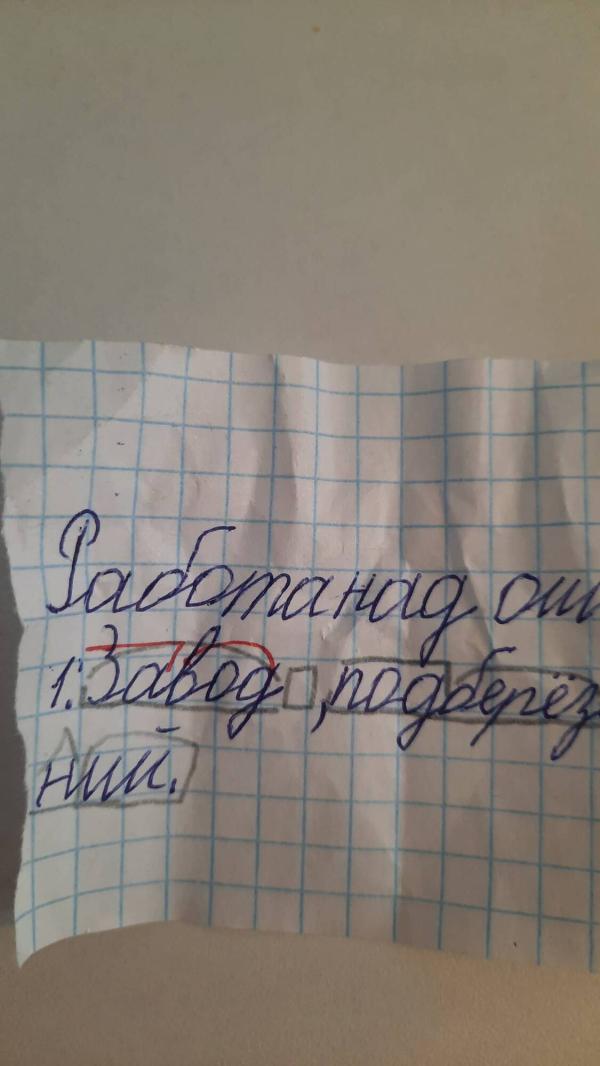 Работа над ош
1. Завод, подберёз
ний.